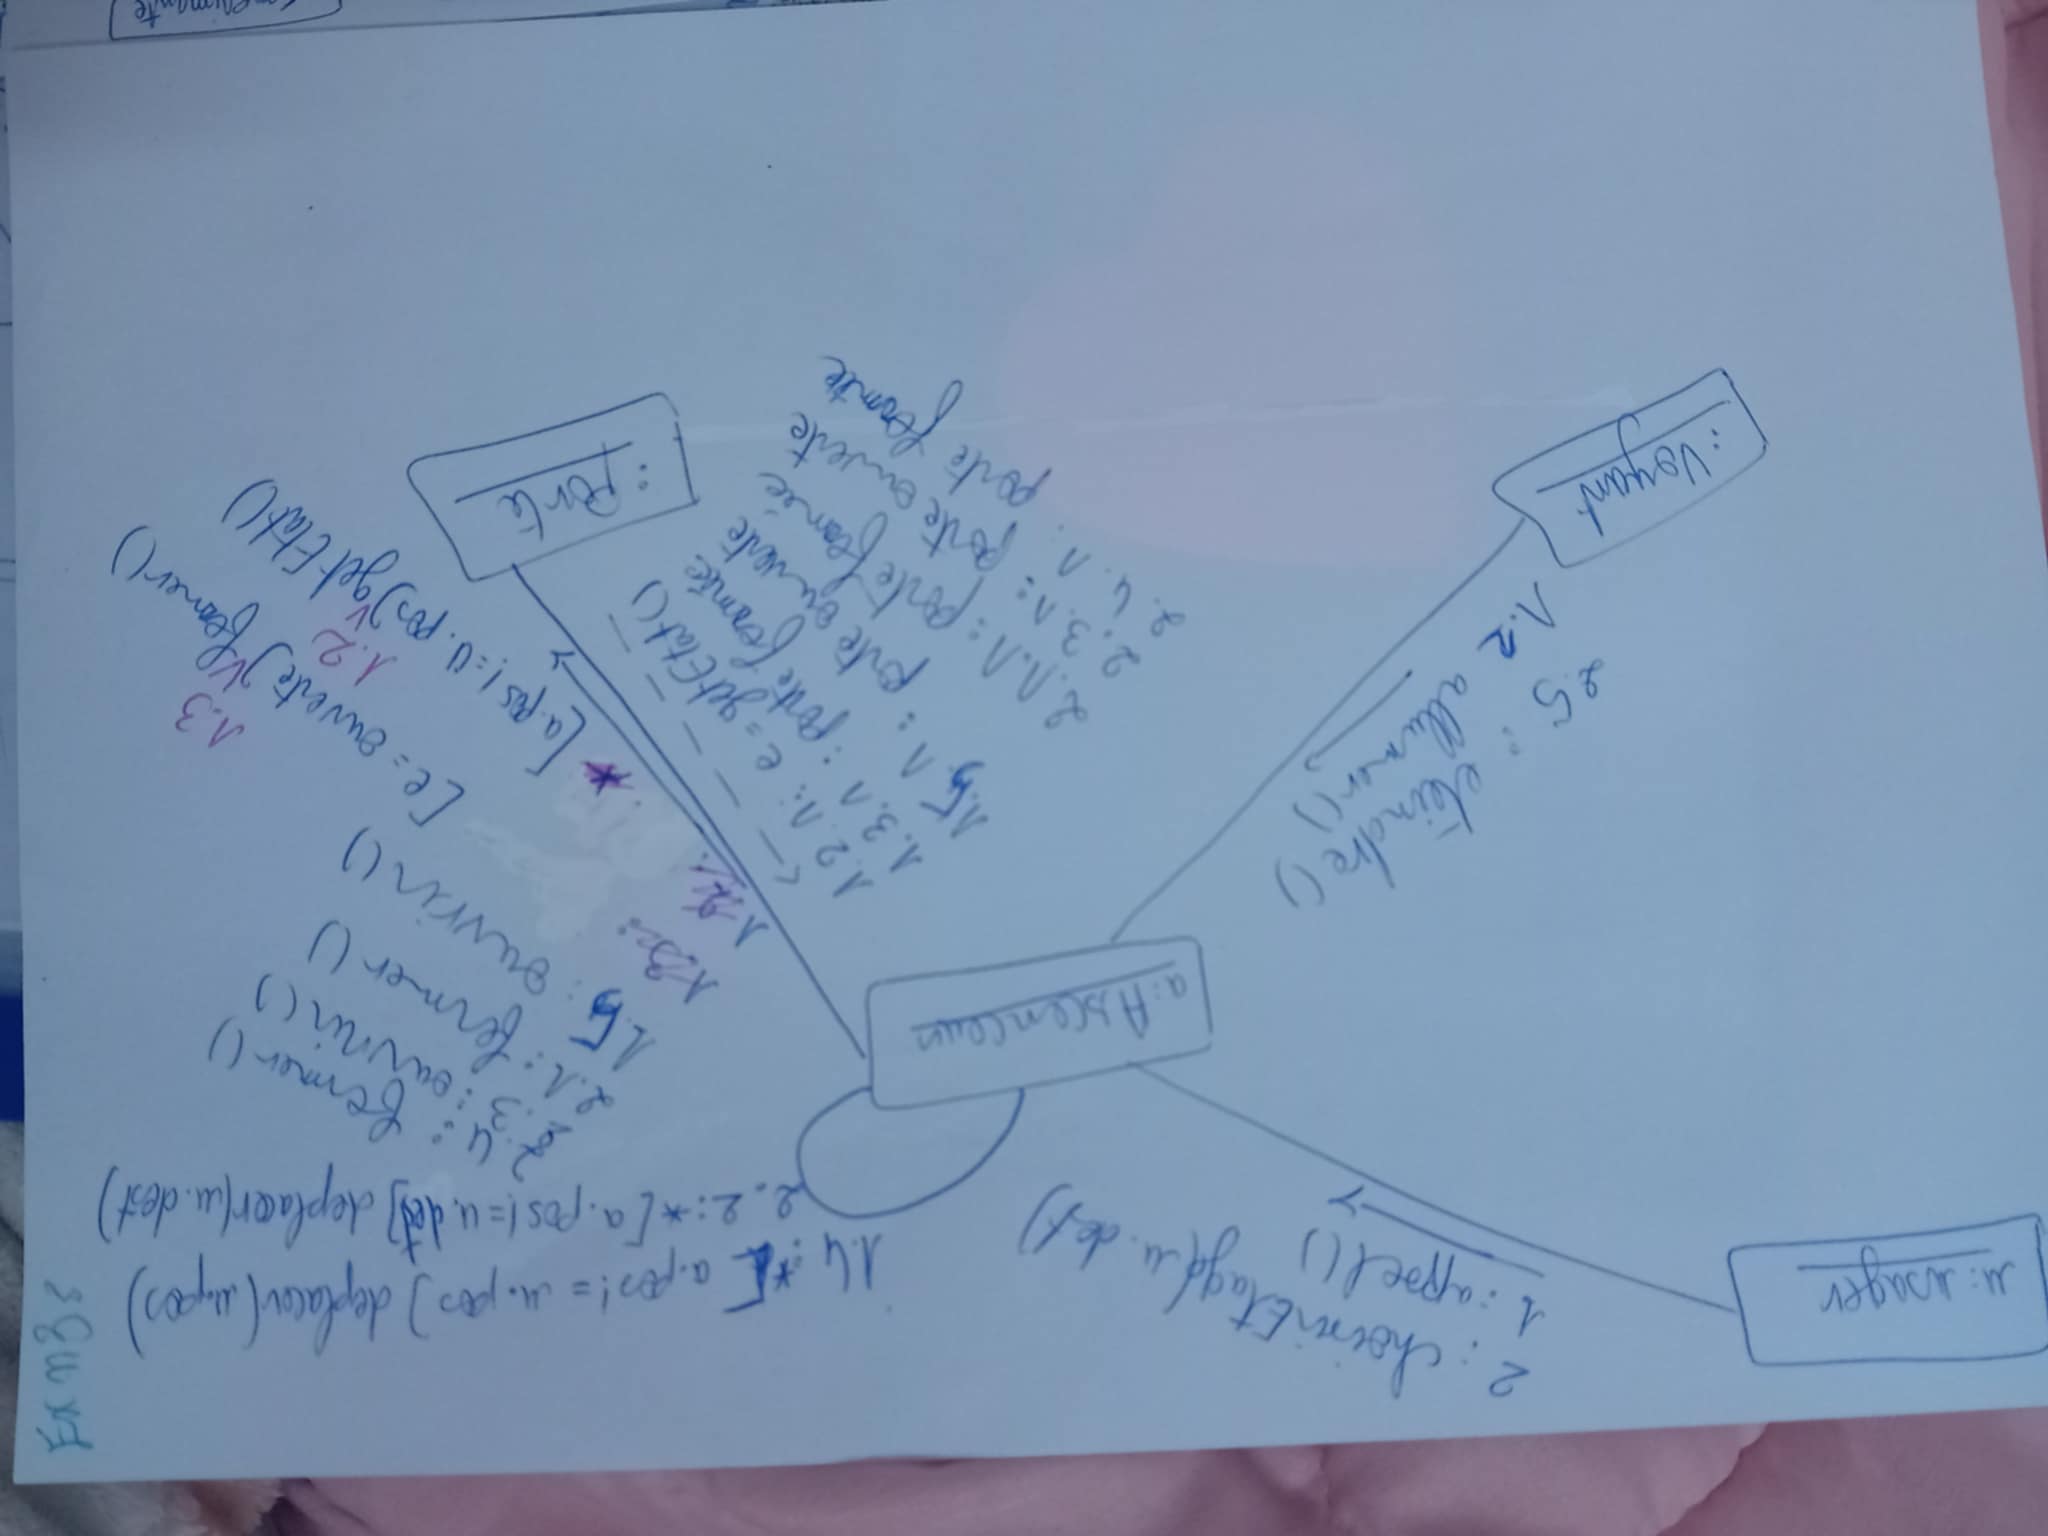 Ex n°3:
u: usager
2 : choisirEtag(u.dest)
1 : appel()
1.4 :*[ a.pos != u.pos ] deplacer(u.pos)
2.2 : *[a.pos != u.dest] deplacer(u.dest)
a: Ascenceur
2.4 : fermer()
2.3 : ouvrir()
2.1 : fermer()
1.5 : ouvrir()
1.3: [e = ouverte] 1.3 fermer()
1.2: * [a.pos != u.pos] 1.2 getEtat()
1.2.1: e = getEtat()
1.3.1 : porte fermée
1.5.1 : porte ouverte
2.1.1 : porte fermée
2.3.1: porte ouverte
2.4.1. porte fermée
2.5 : eteindre()
1.1 allumer()
: Voyant
: porte
imprimante